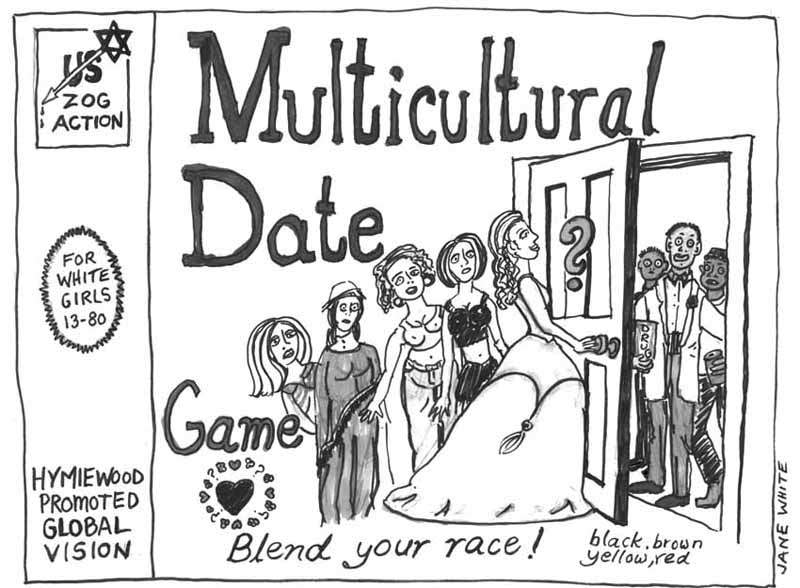 US
ZOG
ACTION
FOR
WHITE
GIRLS
13-80
HYMIEWOOD
PROMOTED
GLOBAL
VISION
Multicultural
Date
Game
?
DRUG
Blend your race!
black, brown
yellow, red
JANE WHITE